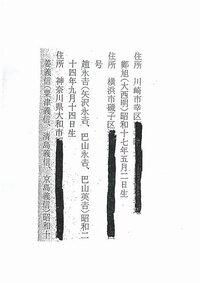 住所 川崎市幸区
鄭旭(大西明)昭和十七年五月二日生
住所 横浜市磯子区
号
趙永吉(矢沢永吉、巴山永吉、巴山英吉)昭和二
十四年九月十四日生
住所 神奈川県大和市
姜義信(粟津義信、清島義信、京島義信)昭和十